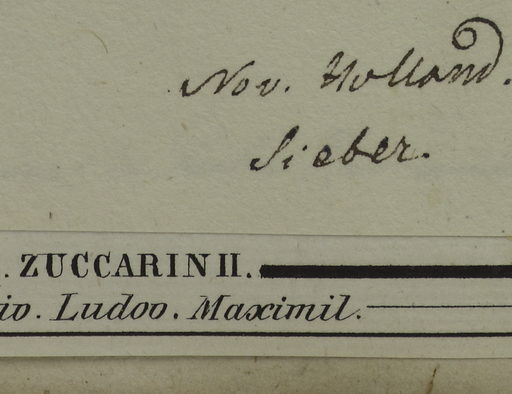 Nov. Holland.
Sieber.
. ZUCCARINII.
io. Ludov. Maximil.